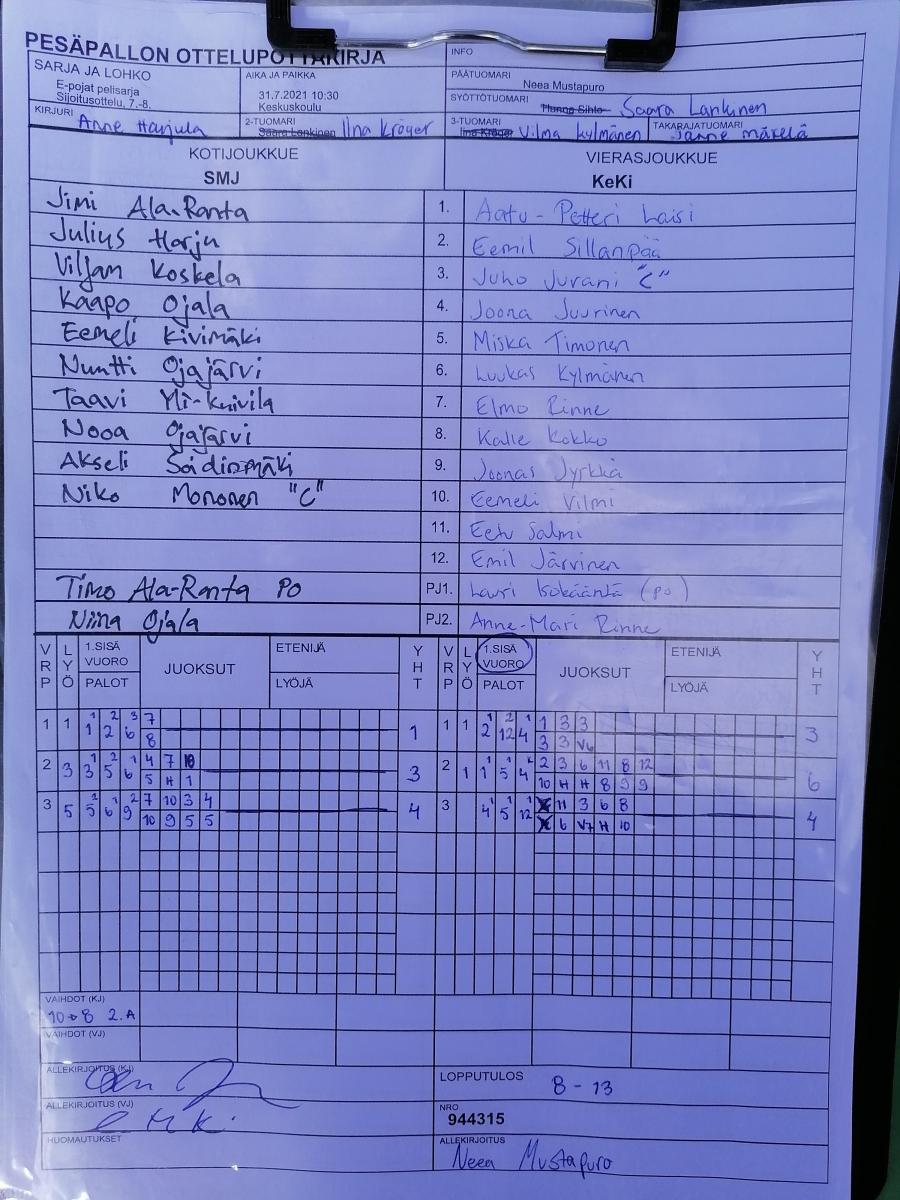 PESÄPALLON OTTELUPÖYTÄKIRJA
INFO
SARJA JA LOHKO
E-pojat pelisarja
Sijoitusottelu, 7.-8.
AIKA JA PAIKKA
31.7.2021 10:30
Keskuskoulu
PÄÄTUOMARI
Neea Mustapuro
SYÖTTÖTUOMARI
Saara Lankinen
KIRJURI
Anne Harjula
2-TUOMARI
Saara Lankinen Iina Kröger
3-TUOMARI
Iina Kröger Vilma Kylmänen
TAKARAJATUOMARI
Janne Mäkelä
KOTIJOUKKUE
SMJ
VIERASJOUKKUE
KeKi
Jimi Ala-Ranta 1. Aatu-Petteri Laisi
Julius Harju 2. Eemil Sillanpää
Viljam Koskela 3. Juho Jurani "C"
Kaapo Ojala 4. Joona Juurinen
Eemeli Kivimäki 5. Miska Timonen
Nuutti Ojajärvi 6. Luukas Kylmänen
Taavi Yli-Knivila 7. Elmo Rinne
Nooa Ojajärvi 8. Kalle Kokko
Akseli 9. Joonas Jyrkkä
Niko Mononen "C" 10. Eemeli Vilmi
11. Eetu Salmi
12. Emil Järvinen
Timo Ala-Ranta PO PJ1. Lauri Isokääntä (po)
Niina Ojala PJ2. Anne-Mari Rinne
VRP LYÖ 1.SISÄ VUORO PALOT JUOKSUT ETENIJÄ LYÖJÄ YHT VRP LYÖ 1.SISÄ VUORO PALOT JUOKSUT ETENIJÄ LYÖJÄ YHT
1 1 1 2 6 7 1 1 1 2 12 4 1 3 3 3
8 3 3 V6
2 3 3 5 6 4 7 10 3 2 1 1 5 4 2 3 6 11 8 12 6
5 H 1 10 H H 8 9 9
3 5 5 6 9 7 10 3 4 4 3 4 5 12 11 3 6 8 4
10 9 5 5 6 V7 H 10
VAIHDOT (KJ)
10→8 2.A
VAIHDOT (VJ)
ALLEKIRJOITUS (KJ)
LOPPUTULOS 8 - 13
ALLEKIRJOITUS (VJ)
NRO
944315
HUOMAUTUKSET
ALLEKIRJOITUS
Neea Mustapuro